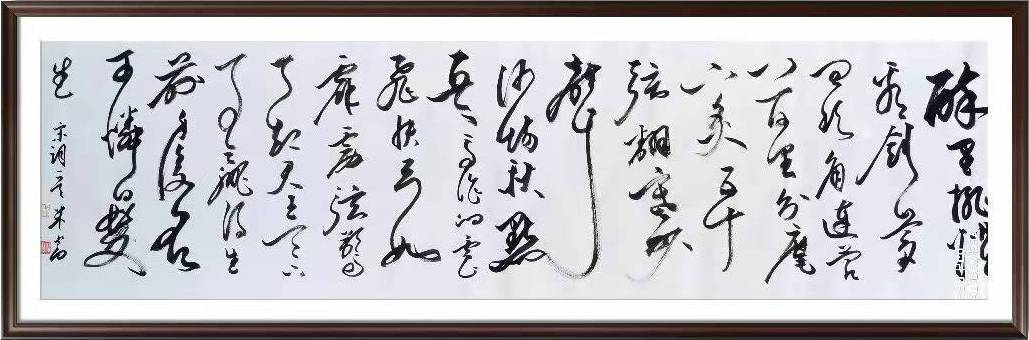 醉里挑灯
看剑梦
回吹角连营
八百里分麾
下炙五十
弦翻塞外
声
沙场秋点
兵马作的卢
飞快弓如
霹雳弦惊
了却君王天下
事赢得生
前身后名
可怜白发
生
宋词